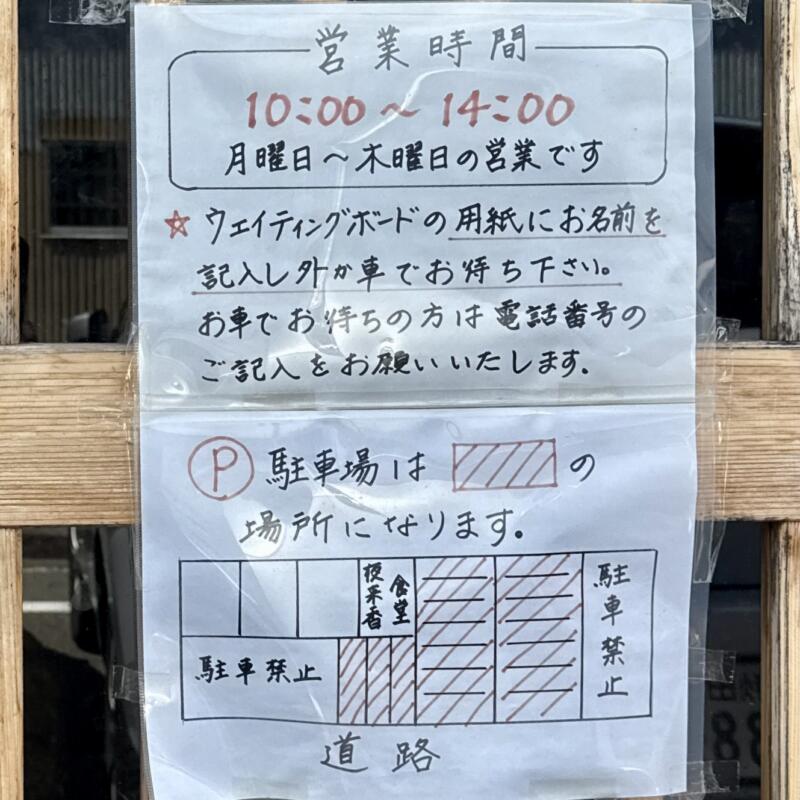 営業時間
10:00～14:00
月曜日～木曜日の営業です
☆ウェイティングボードの用紙にお名前を
記入し外か車でお待ち下さい。
お車でお待ちの方は電話番号の
ご記入をお願いいたします。
Ⓟ駐車場は
の
場所になります。
食堂
夜来香
駐車禁止
駐車禁止
道路